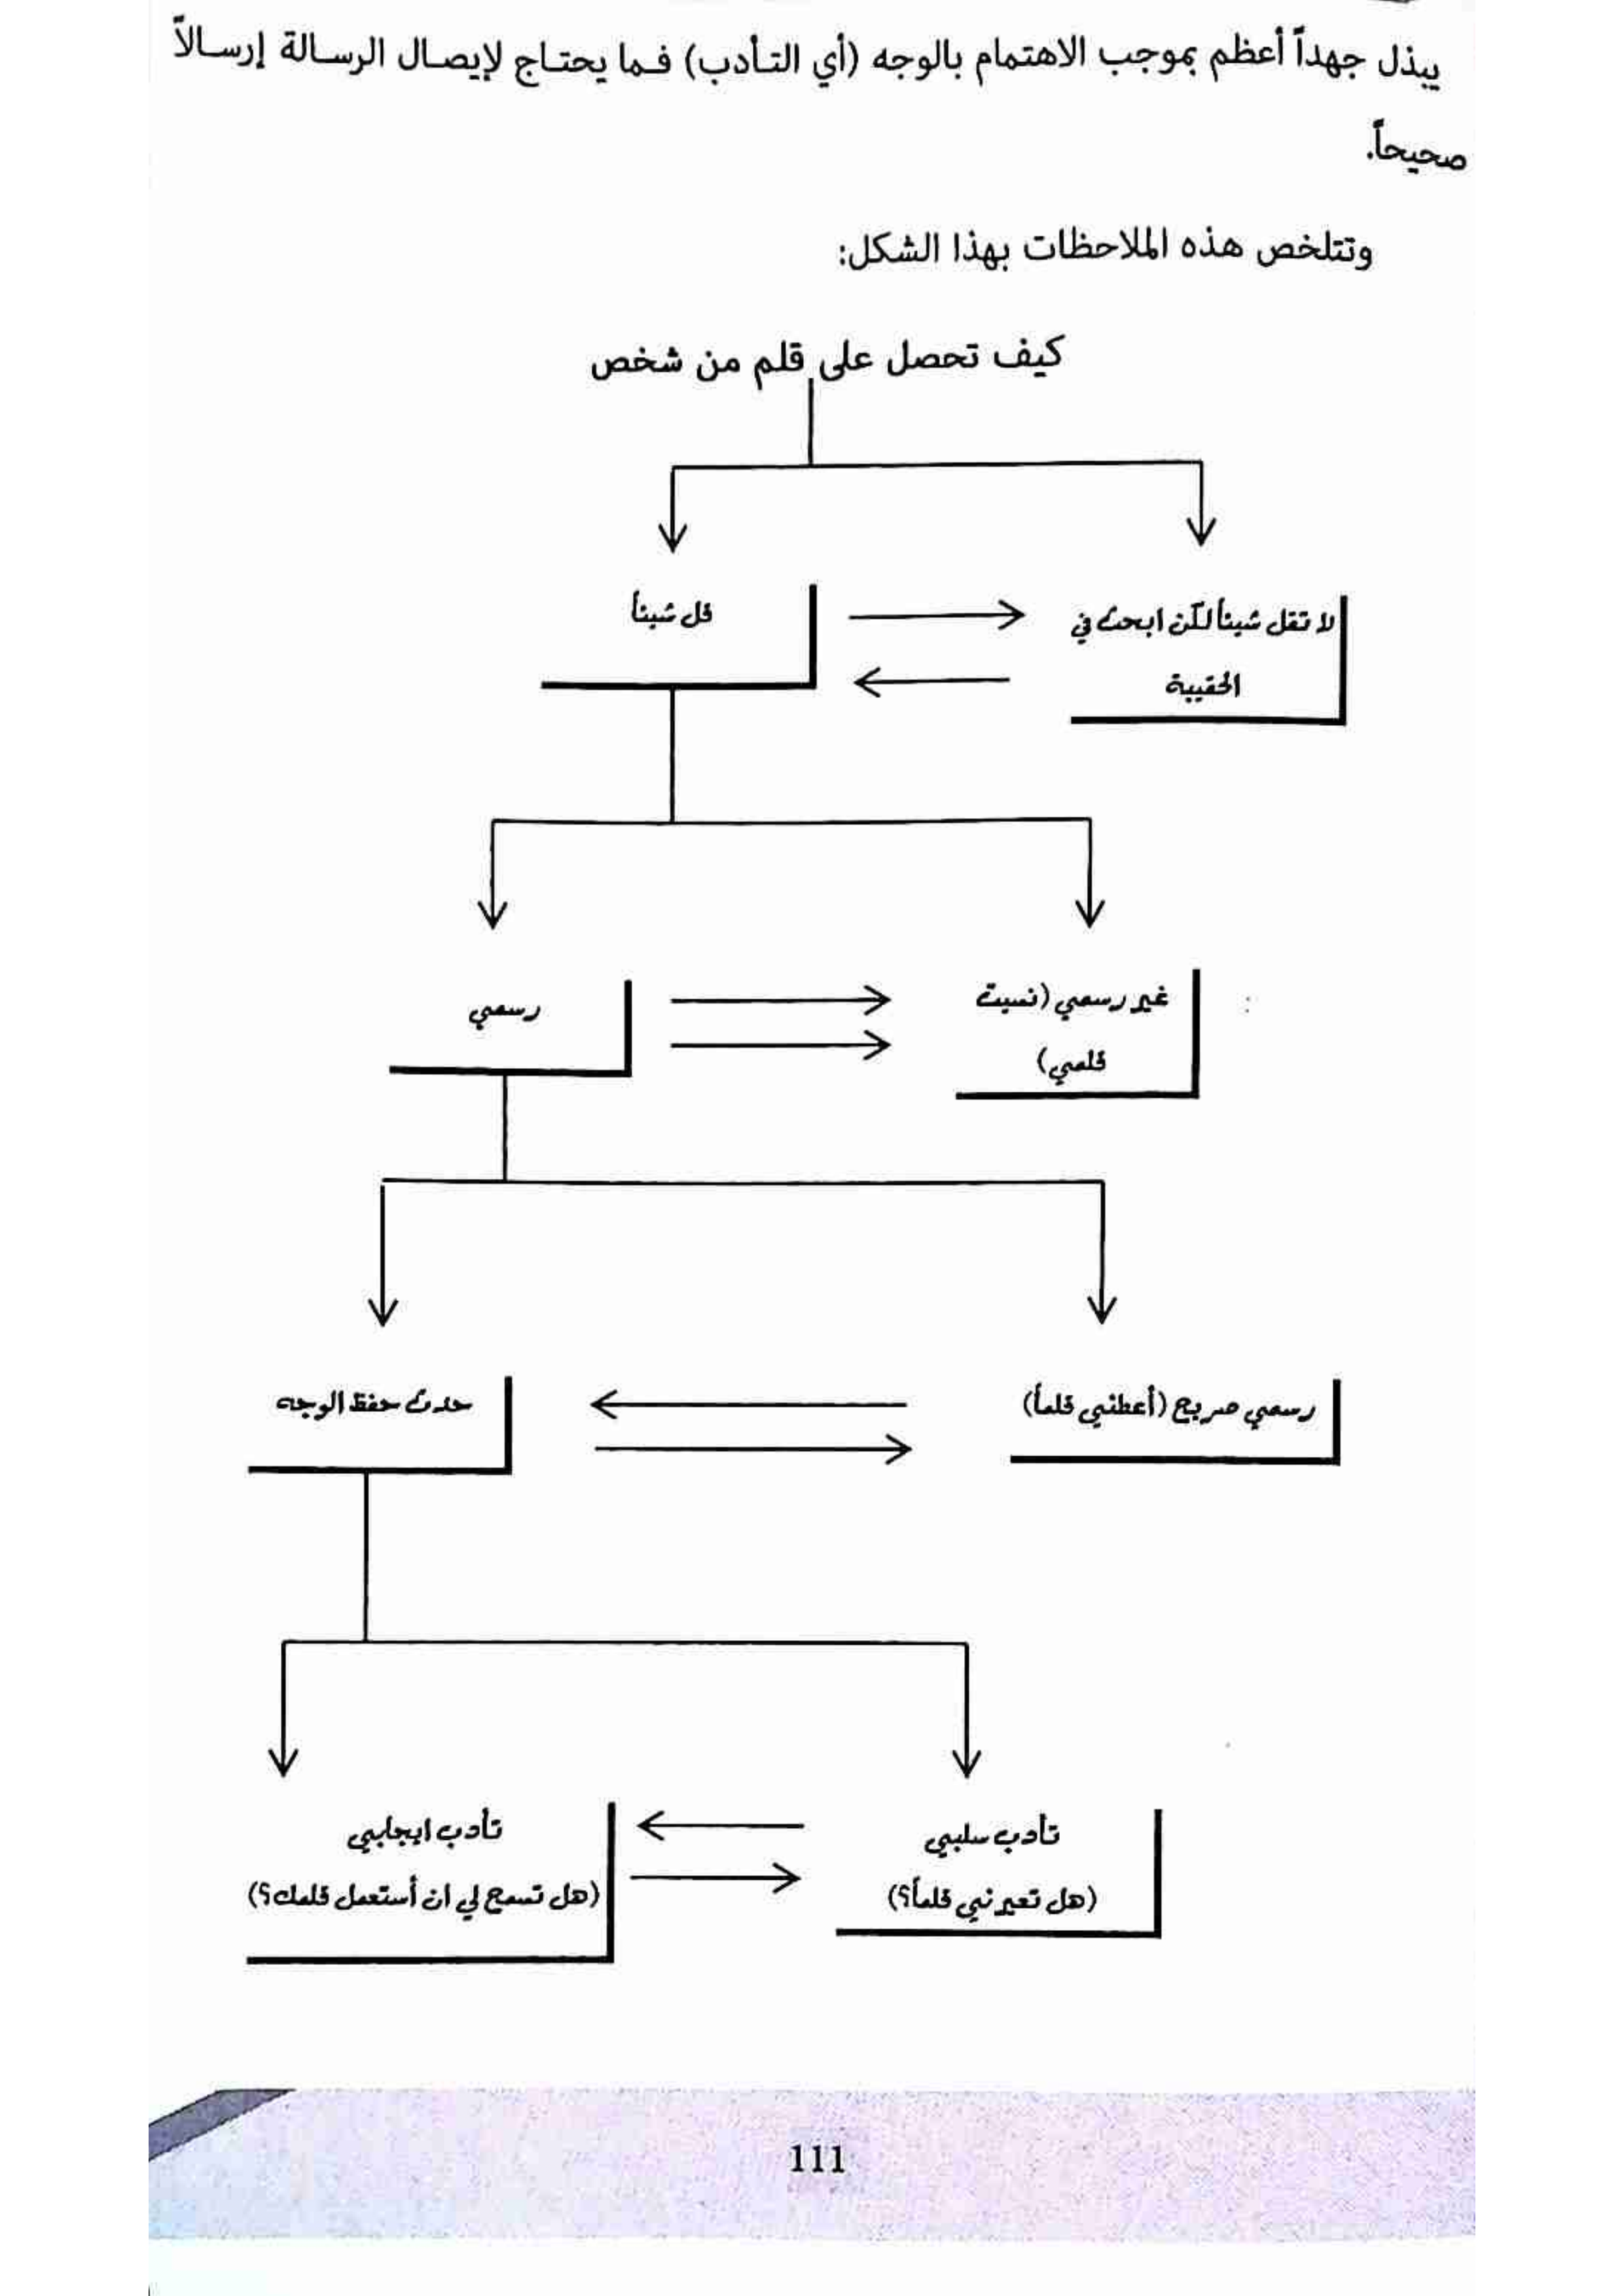 يبذل جهداً أعظم بموجب الاهتمام بالوجه (أي التأدب) فما يحتاج لإيصال الرسالة إرسالاً
صحيحاً.
وتتلخص هذه الملاحظات بهذا الشكل:
كيف تحصل على قلم من شخص
لا تقل شيئاً لكن ابحث في
الحقيبة
قل شيئاً
غير رسمي (نسيت
قلمي)
رسمي
رسمي صريح (أعطني قلماً)
حدث حفظ الوجه
تأدب سلبي
(هل تعيرني قلماً؟)
تأدب ايجابي
(هل تسمح لي ان أستعمل قلمك؟)
111